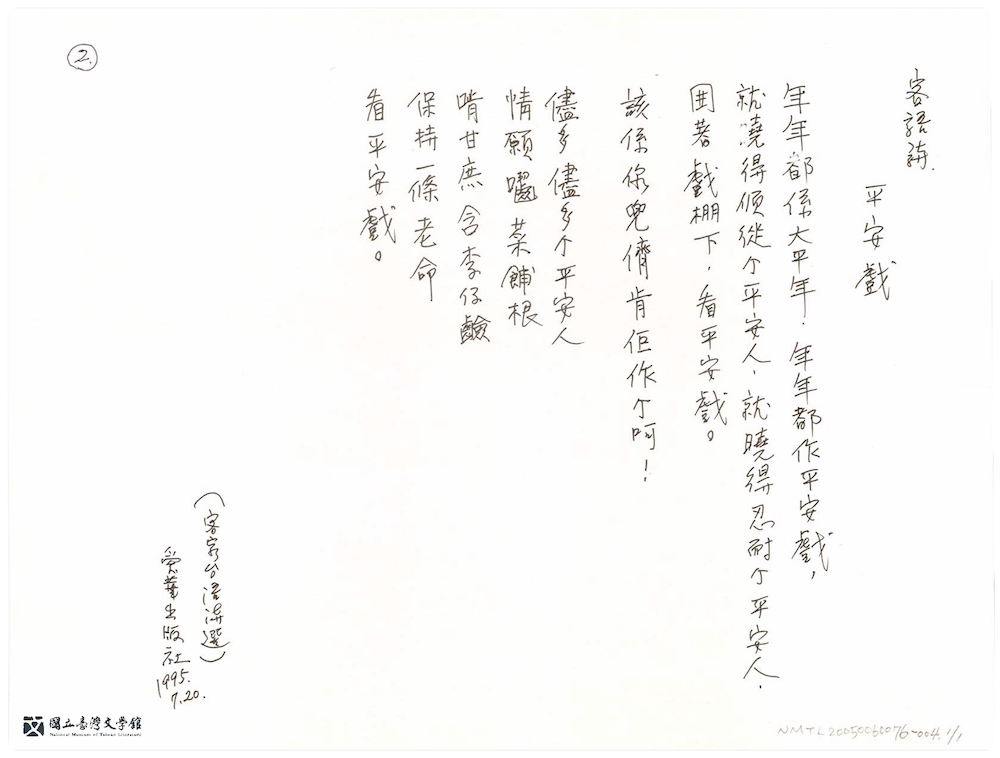 2.
客語詩.
平安戲
年年都係大平年.年年都作平安戲,
就曉得順從个平安人,就曉得忍耐个平安人.
囲著戲棚下,看平安戲。
該係你兜儕肯佢作个呵!
儘多儘多个平安人
情願囓菜餔根
啃甘庶含李仔鹼
保持一條老命
看平安戲。
(客家台語詩選)
愛華出版社
1995.
7.20.
國立臺灣文學館
National Museum of Taiwan Literature
NMTL20050060076-004.1/1